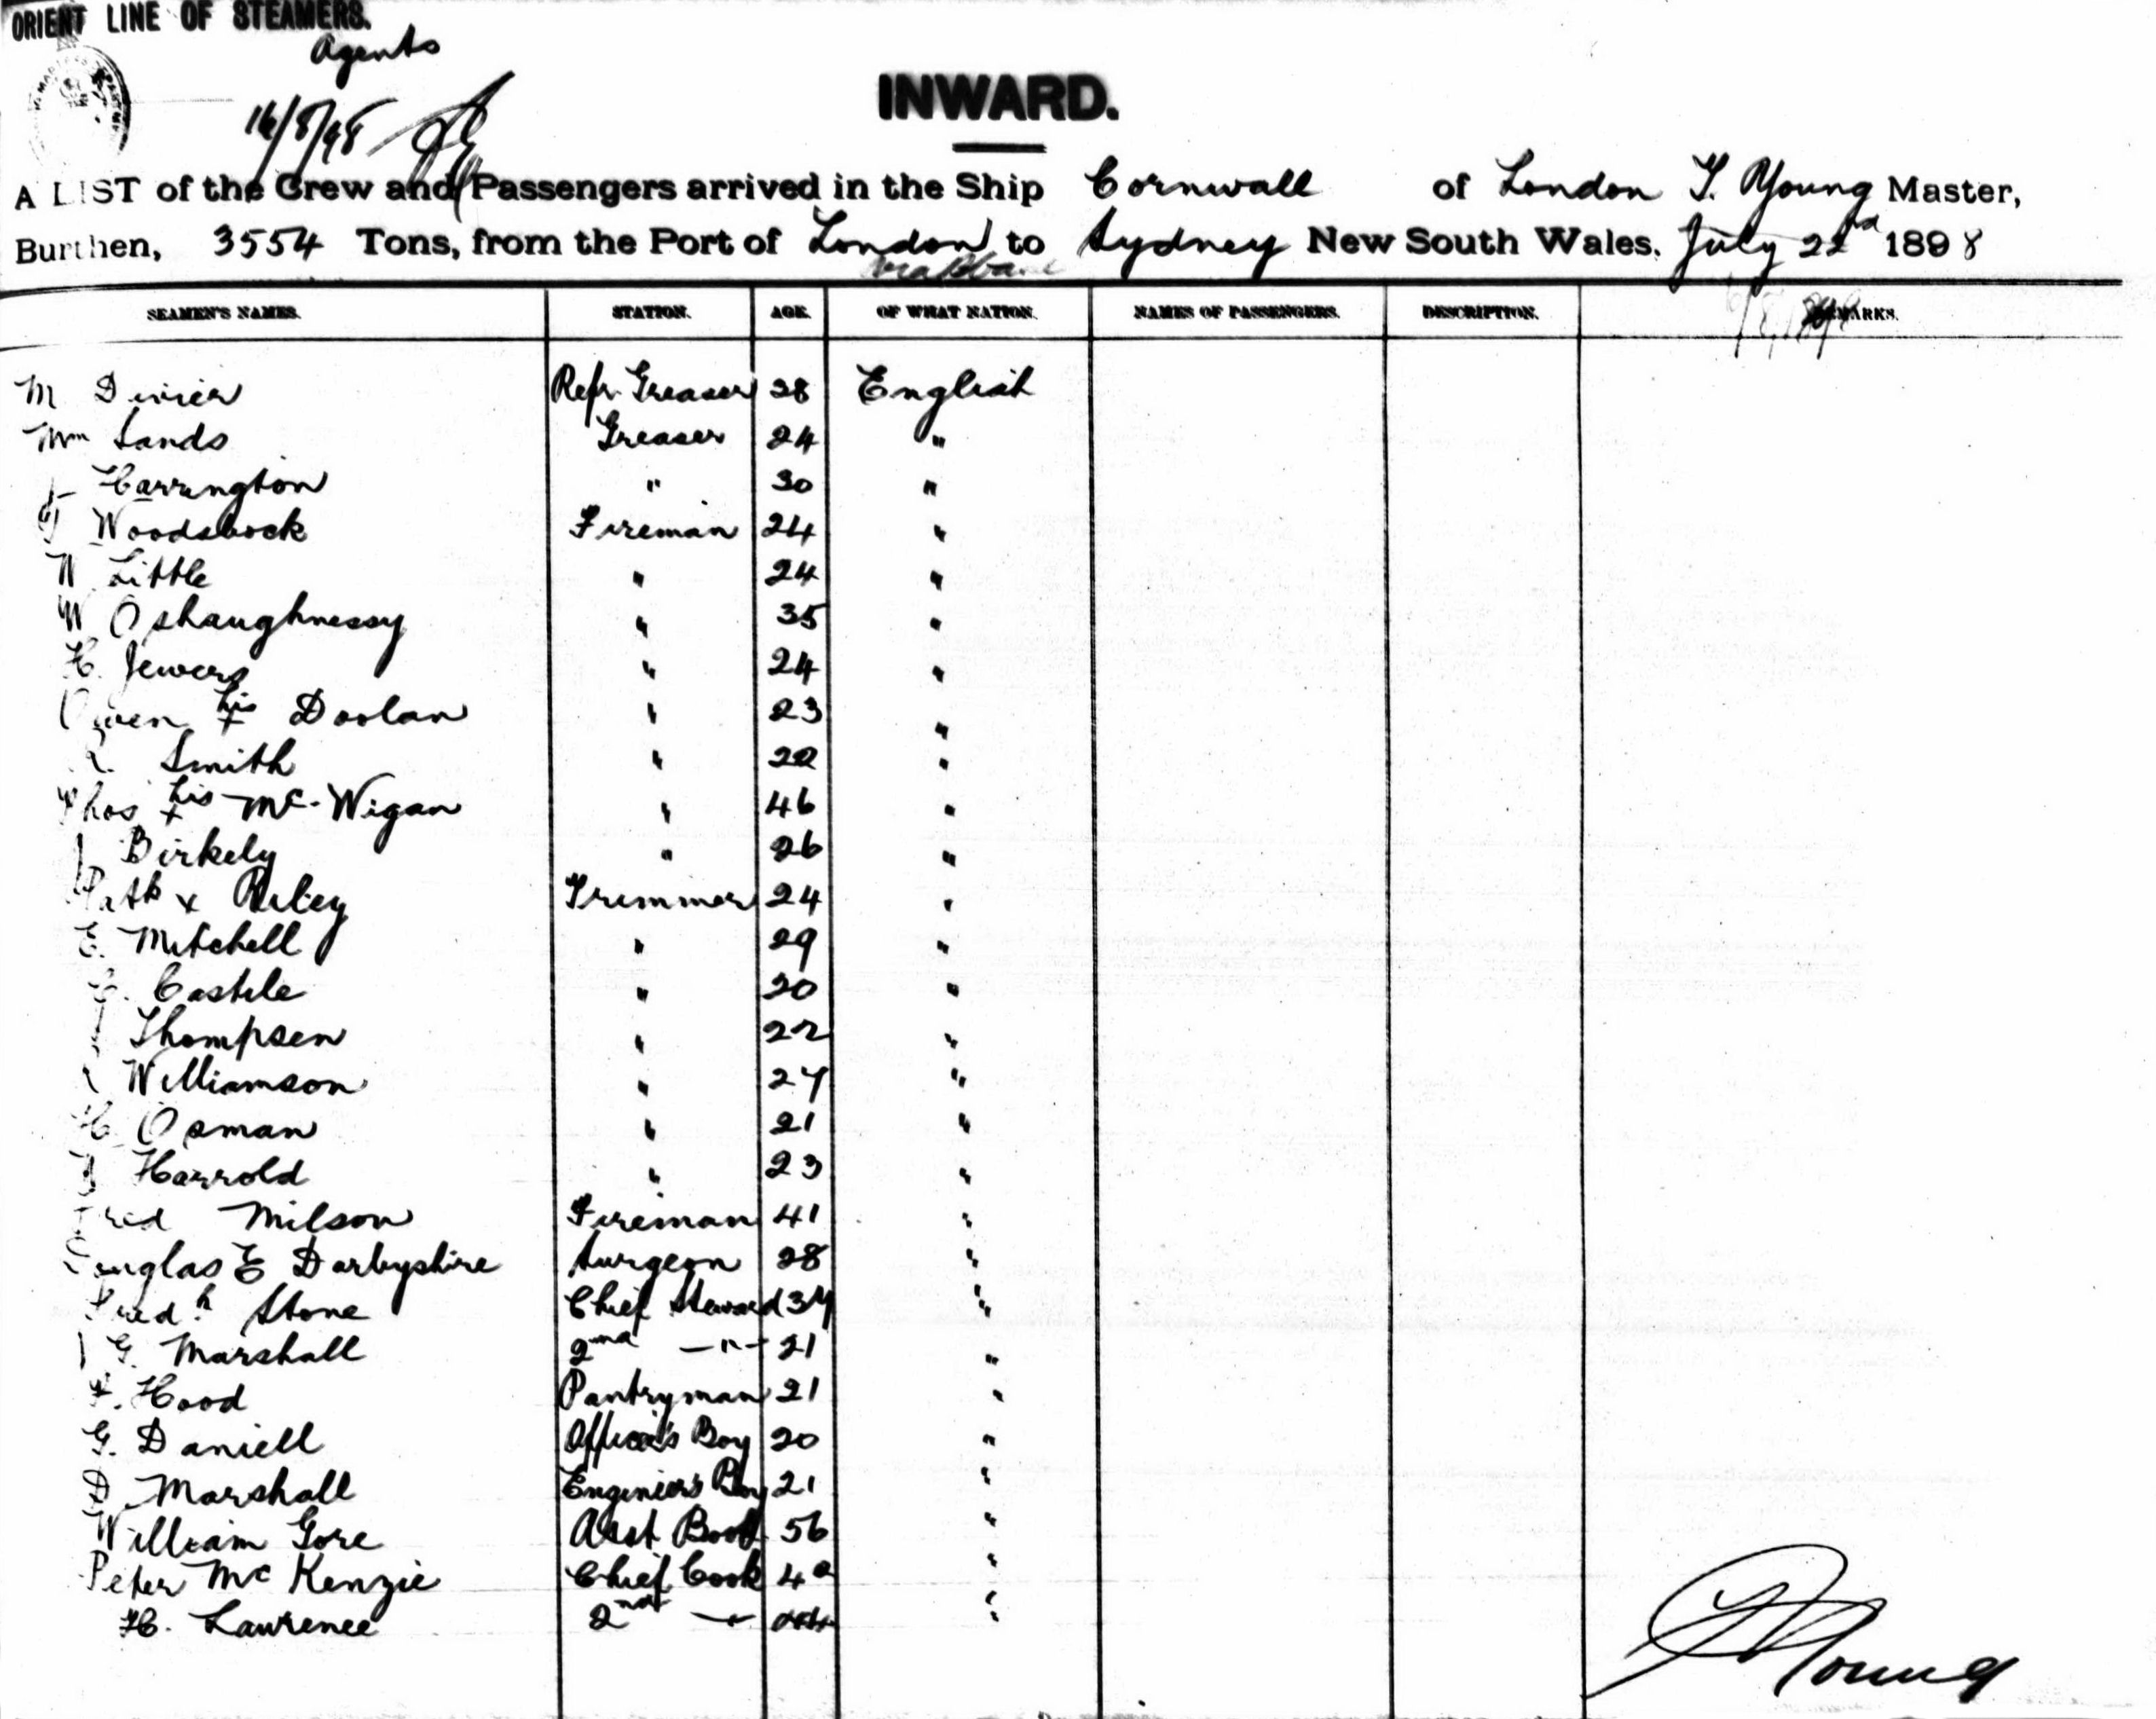 ORIENT LINE OF STEAMERS.
Agents
16/8/98
INWARD.
A LIST of the Crew and Passengers arrived in the Ship Cornwall of London T. Young Master,
Burthen, 3554 Tons, from the Port of London to Sydney New South Wales, July 22nd 1898
SEAMEN'S NAMES. STATION. AGE. OF WHAT NATION. NAMES OF PASSENGERS. DESCRIPTION. REMARKS.
M Refr. Greaser 28 English
Wm Sands Greaser 24 "
Carrington " 30 "
Woodsbock Fireman 24 "
W Little " 24 "
W Oshaughnessy " 35 "
H. Jewers " 24 "
Owen his x Doolan " 23 "
Smith " 22 "
Thos his x Mc. Wigan " 46 "
J Birkely " 26 "
Patk x Riley Trimmer 24 "
E. Mitchell " 29 "
Castile " 20 "
Thompsen " 22 "
Williamson " 27 "
H Osman " 21 "
Harrold " 23 "
Fred Milson Fireman 41 "
Douglas E Darbyshire Surgeon 28 "
Fredk Stone Chief Steward 34 "
J G. Marshall 2nd —"— 21 "
F. Hood Pantryman 21 "
G. Daniell Officer's Boy 20 "
D Marshall Engineers Boy 21 "
William Gore Asst 56 "
Peter McKenzie Chief Cook 40 "
H. Lawrence 2nd —"— "
T Young